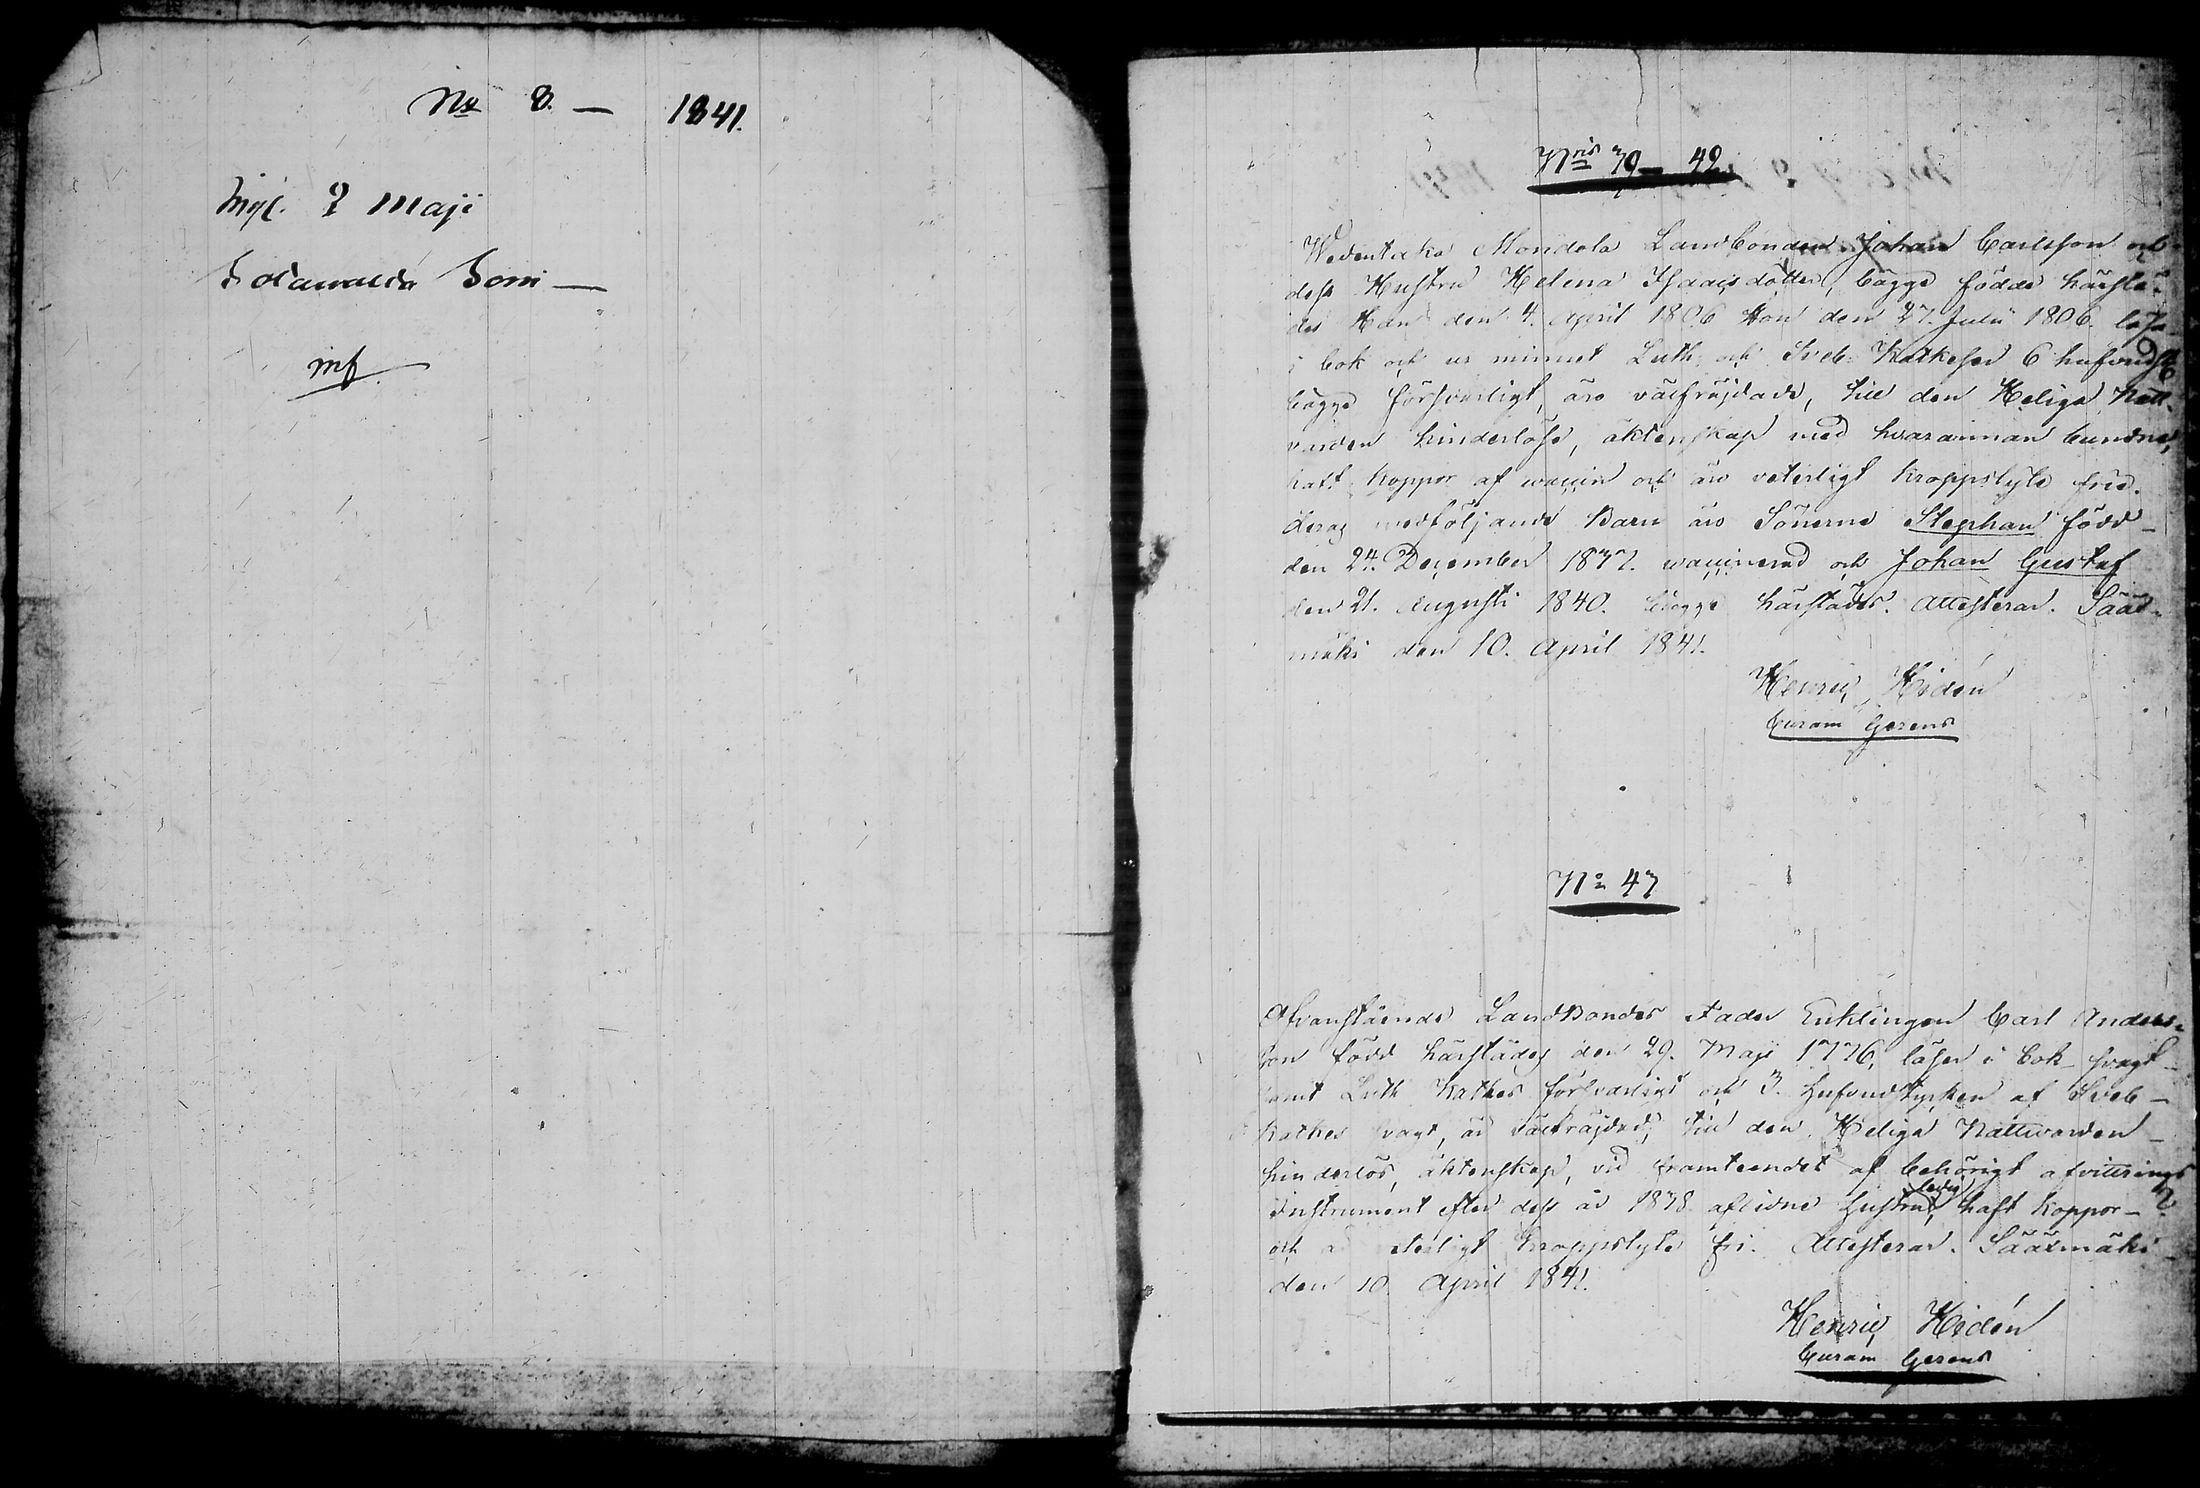 No 8. — 1841.
Ingl. 9 Maji
Soni —
inf.
Nris 39 — 42.
Wedentaka Mondola Landbonden Johan Carlsson och
dess Hustru Helena Isaacsdotter, bägge födde härstä-
des Han den 4. April 1806 Hon den 27. Julii 1806. läsa
i bok och ur minnet Luth. och Sveb. Katkeser 6 hufvudst
bägge försvarligt, äro välfräjdade, till den Heliga Natt-
varden hinderlöse, äktenskap med hvarannan bundne,
haft koppor af vaccin och äro veterligt kroppslyte frie.
Deras medföljande Barn äro Sönerne Stephan född
den 24. December 1837. vaccinerad och Johan Gustaf
den 21. Augusti 1840. bägge härstädes. Attesterar. Sääx-
mäki den 10. April 1841.
Henric Hidén
Curam Gerens
No 43
Ofvanstående LandBondes Fader Enklingen Carl Anders-
son född härstädes den 29. Maji 1776, läser i bok svagt
samt Luth Katkes försvarligt och 3. Hufvudstycken af Sveb-
Katkes svagt, är välfräjdad, till den Heliga Nattvarden
hinderlös, äktenskap, vid framteendet af behörigt afvittrings
Instrument efter dess år 1838 aflidne Hustru, ledig haft koppor
och är veterligt kroppslyte fri. Attesterar. Sääxmäki
den 10. April 1841.
Henric Hidén
Curam Gerens